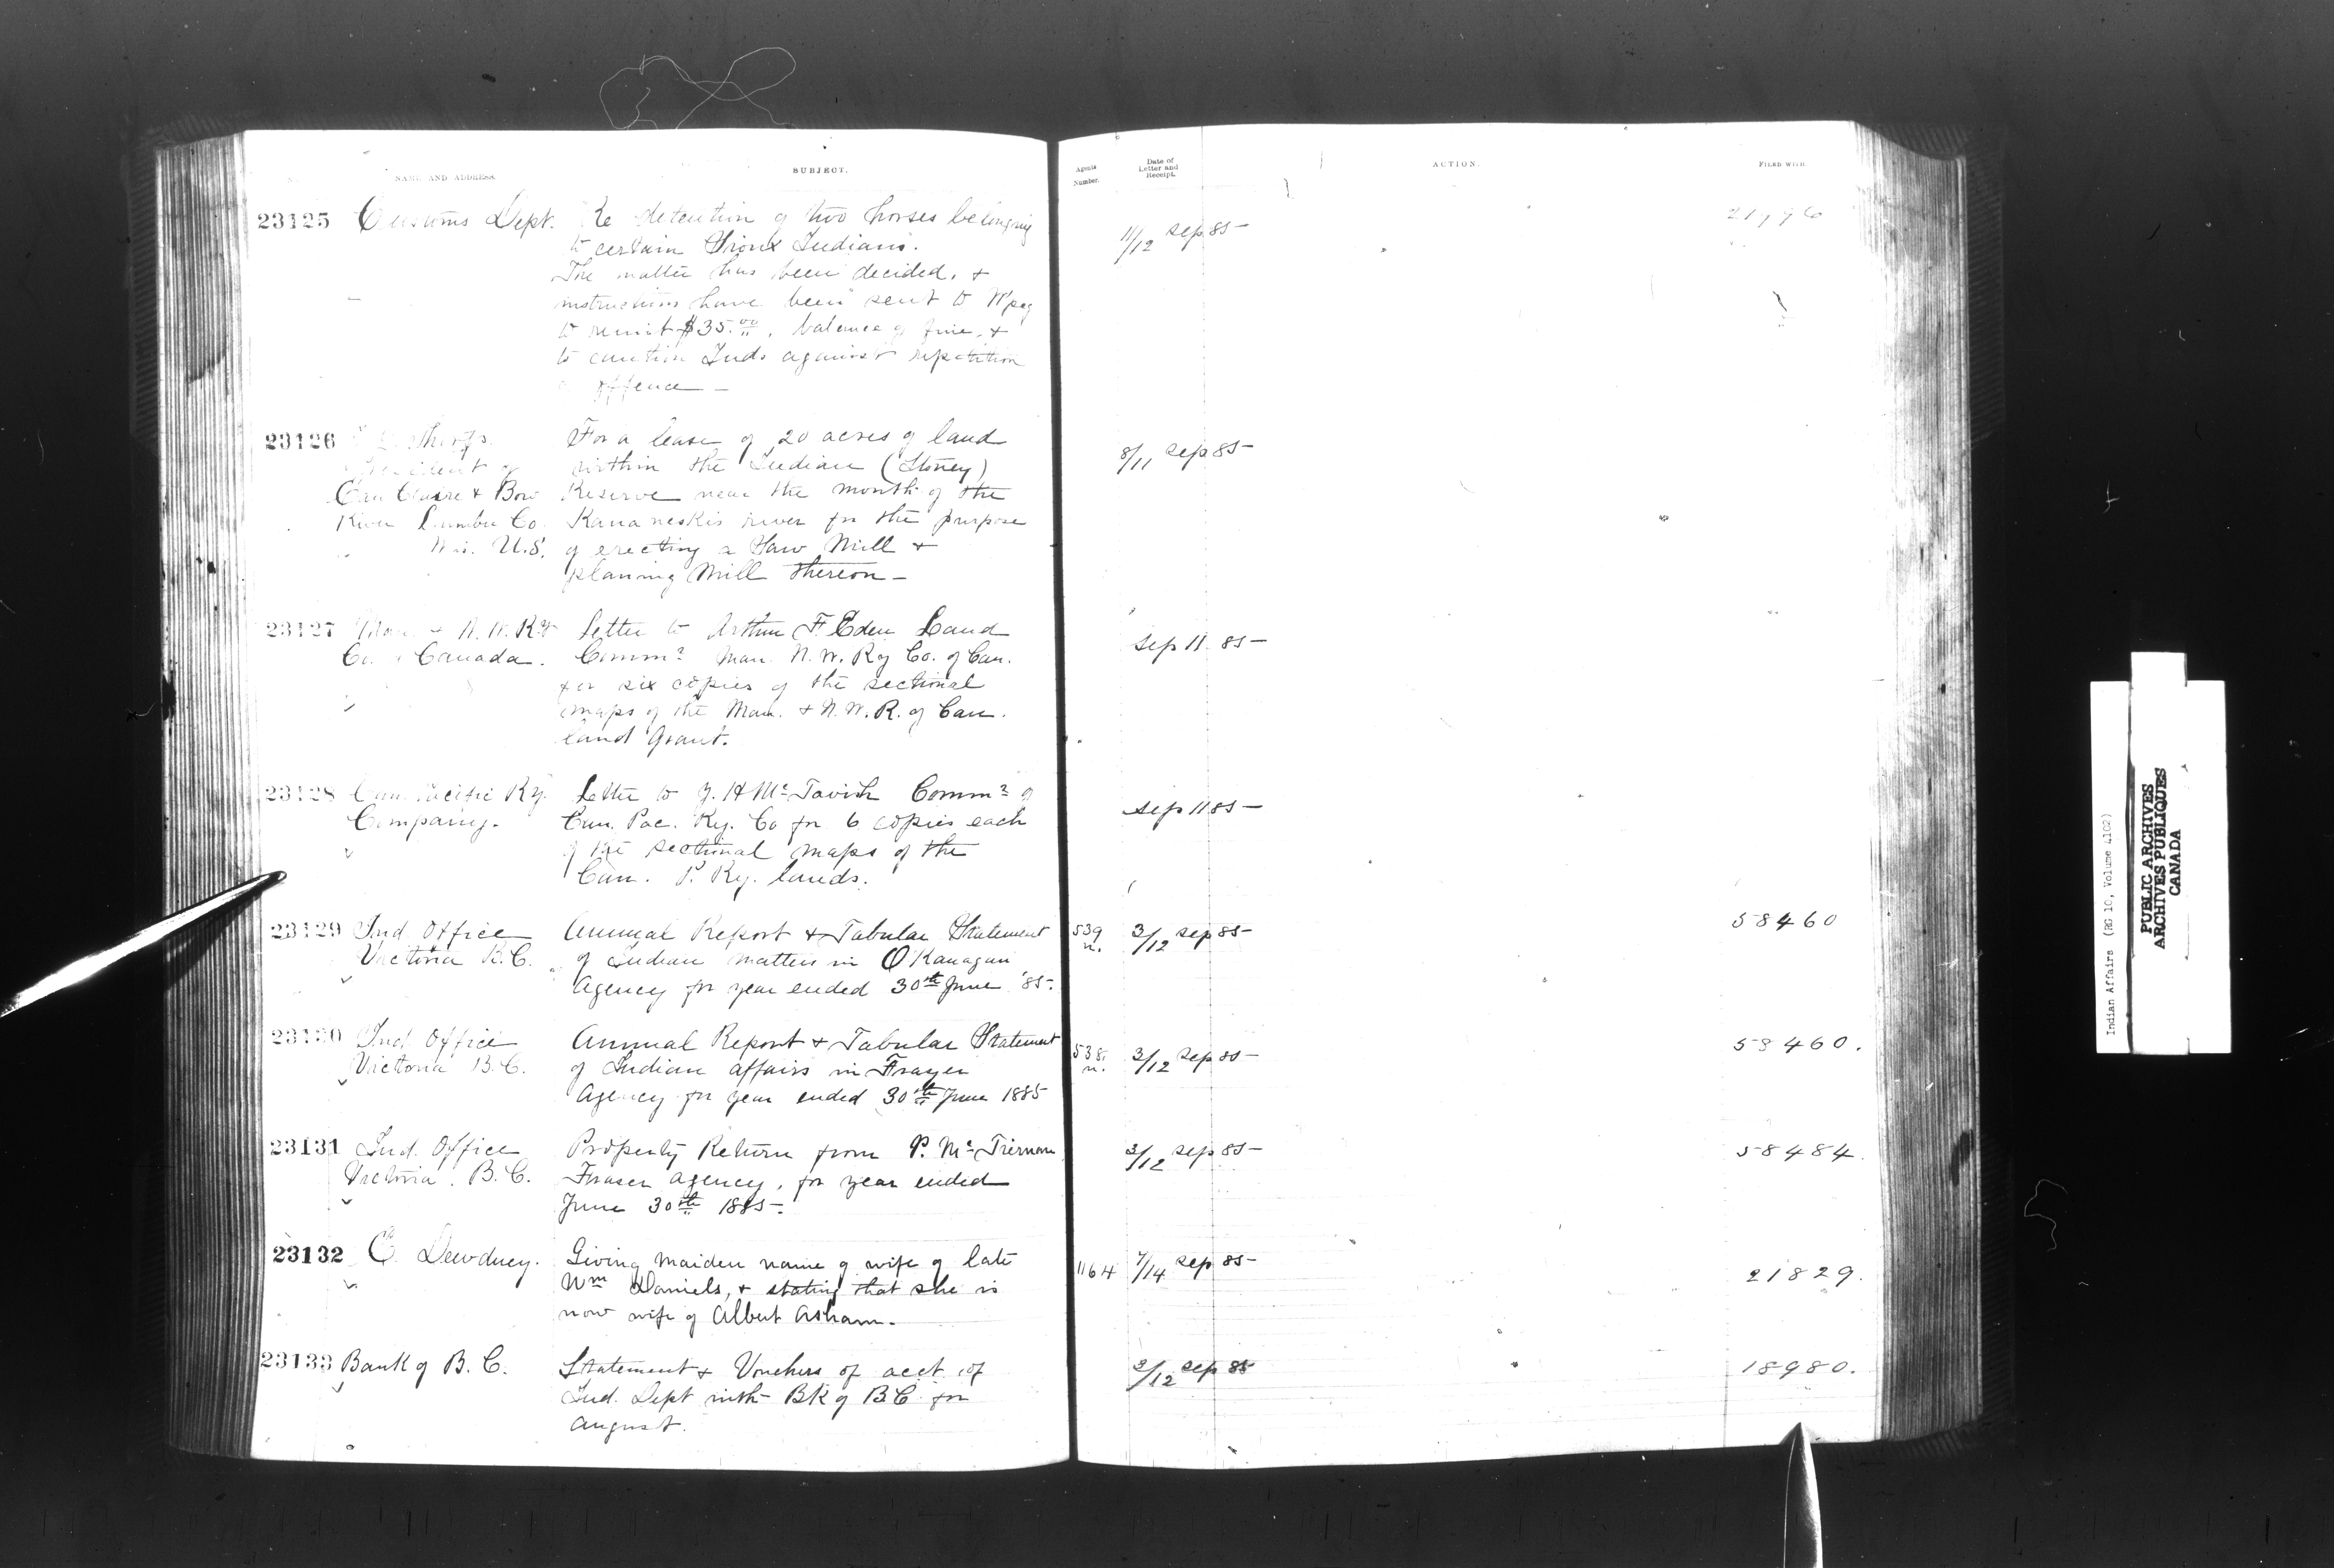 NAME AND ADDRESS.
SUBJECT.
Agents Number.
Date of Letter and Receipt.
ACTION.
FILED WITH
23125 Customs Dept. Re detention of two horses belonging
to certain Sioux Indians.
The matter has been decided, +
instructions have been sent to W'peg
to remit $35.00, balance of fine, +
to caution Inds against repetition
offence —
11/12 Sep 85
23126
For a lease of 20 acres of land
President of within the Indian (Stoney)
Eau Claire + Bow Reserve near the mouth of the
River Lumber Co. Kananeskis river for the purpose
Wis. U.S. of erecting a Saw Mill +
planing Mill thereon —
8/11 Sep 85
23127 Man. + N.W. Ry Letter to Arthur F Eden Land
Co. of Canada. Commr Man. N.W. Ry Co. of Can.
for six copies of the sectional
maps of the Man. + N.W.R. of Can.
land Grant.
Sep 11 85
23128 Can. Pacific Ry. Letter to J. H McTavish Commr of
Company. Can. Pac. Ry. Co for 6 copies each
of the sectional maps of the
Can. P. Ry. lands.
Sep 11 85
23129 Ind Office Annual Report + Tabular Statement 539 3/12 Sep 85 58460
Victoria B.C. of Indian matters in O'Kanagan n.
Agency for year ended 30th June '85.
23130 Ind Office Annual Report + Tabular Statement 538 3/12 Sep 85 58460.
Victoria B.C. of Indian affairs in Frayer n.
Agency for year ended 30th June 1885
23131 Ind. Office Property Return from P. McTiernan 3/12 Sep 85 58484.
Victoria. B.C. Fraser Agency, for year ended
June 30th 1885.
23132 E Dewdney. Giving maiden name of wife of late 1164 7/14 Sep 85 21829.
Wm Daniels, + stating that she is
now wife of Albert Asham.
23133 Bank of B.C. Statement + Vouchers of acct of 3/12 Sep 85 18980.
Ind. Dept with Bk of BC for
August.
Indian Affairs (RG 10, Volume 4102)
PUBLIC ARCHIVES
ARCHIVES PUBLIQUES
CANADA